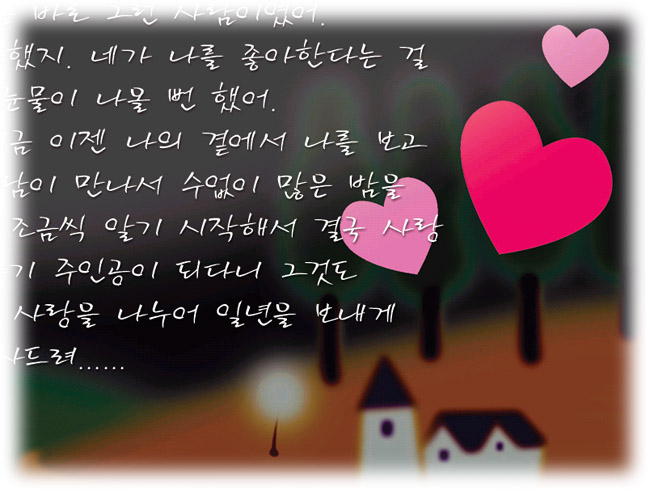 바로 그런 사람이였어.
했지. 네가 나를 좋아한다는 걸
눈물이 나올 번 했어.
금 이젠 나의 곁에서 나를 보고
람이 만나서 수없이 많은 밤을
조금씩 알기 시작해서 결국 사랑
기 주인공이 되다니 그것도
사랑을 나누어 일년을 보내게
사드려......